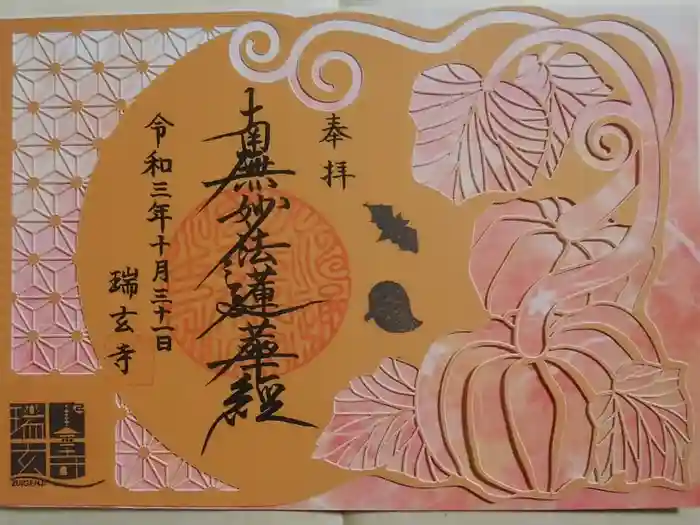 奉拝
南無妙法蓮華経
令和三年十月三十一日
瑞玄寺
瑞玄
ZUIGENJI